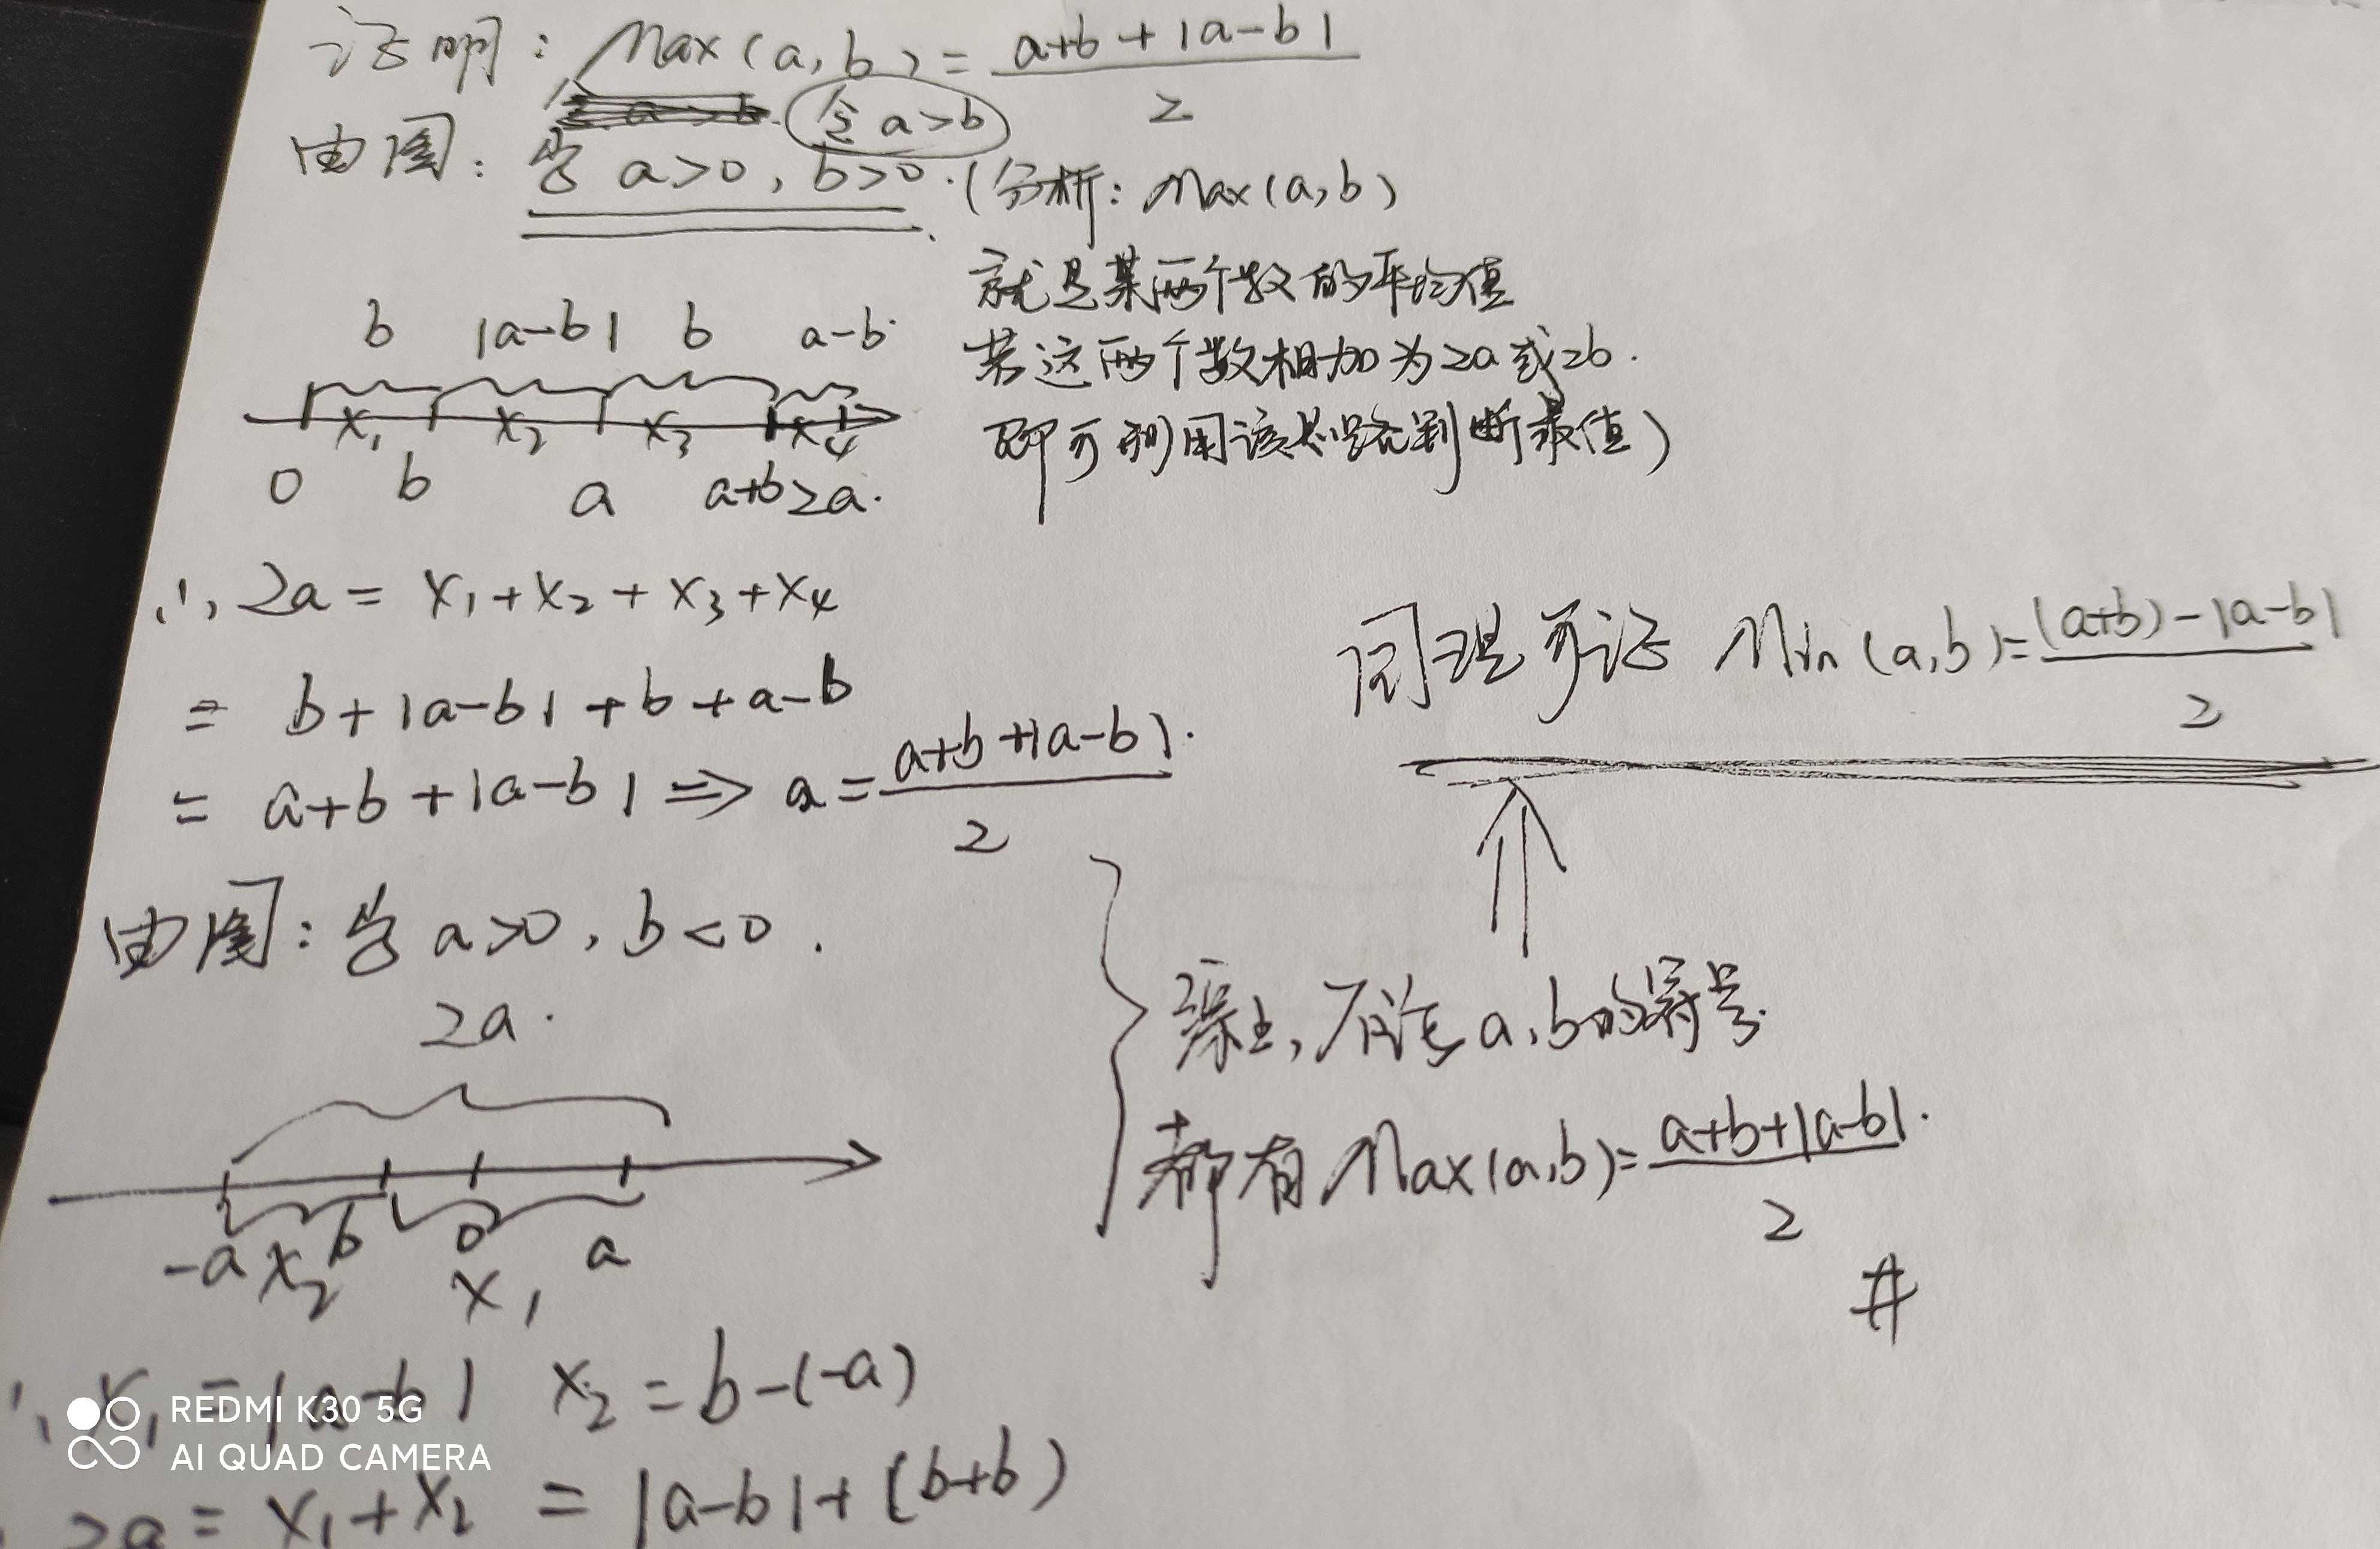 证明：Max(a,b)=(a+b+|a-b|)/2
令 a>b
由图：当 a>0，b>0.（分析：Max(a,b)
就是某两个数的平均值
若这两个数相加为2a或2b.
即可利用该思路判断最值）
b |a-b| b a-b
x₁ x₂ x₃ x₄
0 b a a+b 2a.
∴ 2a = x₁+x₂+x₃+x₄
= b+|a-b|+b+a-b
= a+b+|a-b| ⇒ a=(a+b+|a-b|)/2.
由图：当 a>0，b<0.
2a.
-a b 0 a
x₂ x₁
∴ x₁=|a-b| x₂=b-(-a)
2a = x₁+x₂ = |a-b|+(b+b)
同理可证 Min(a,b)=((a+b)-|a-b|)/2
综上，不论 a,b的符号.
都有 Max(a,b)=(a+b+|a-b|)/2.
#
REDMI K30 5G
AI QUAD CAMERA